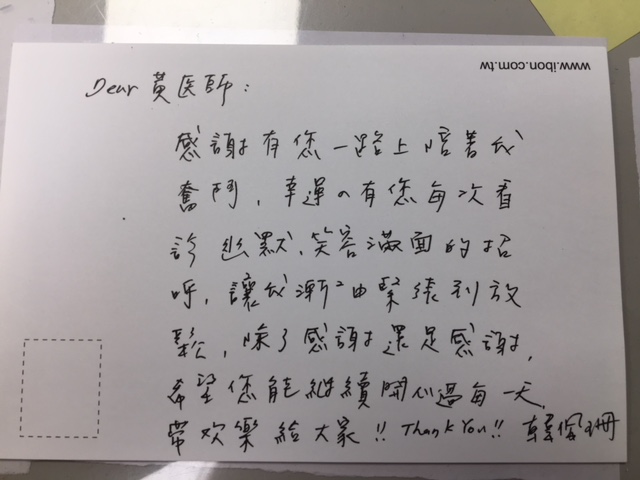 www.ibon.com.tw
Dear 黃医師：
感謝有您一路上陪著我
奮鬥，幸運的有您每次看
診幽默、笑容滿面的招
呼，讓我漸漸由緊張到放
鬆，除了感謝還是感謝，
希望您能継續開心過每一天
帶欢樂給大家!! Thank You!!